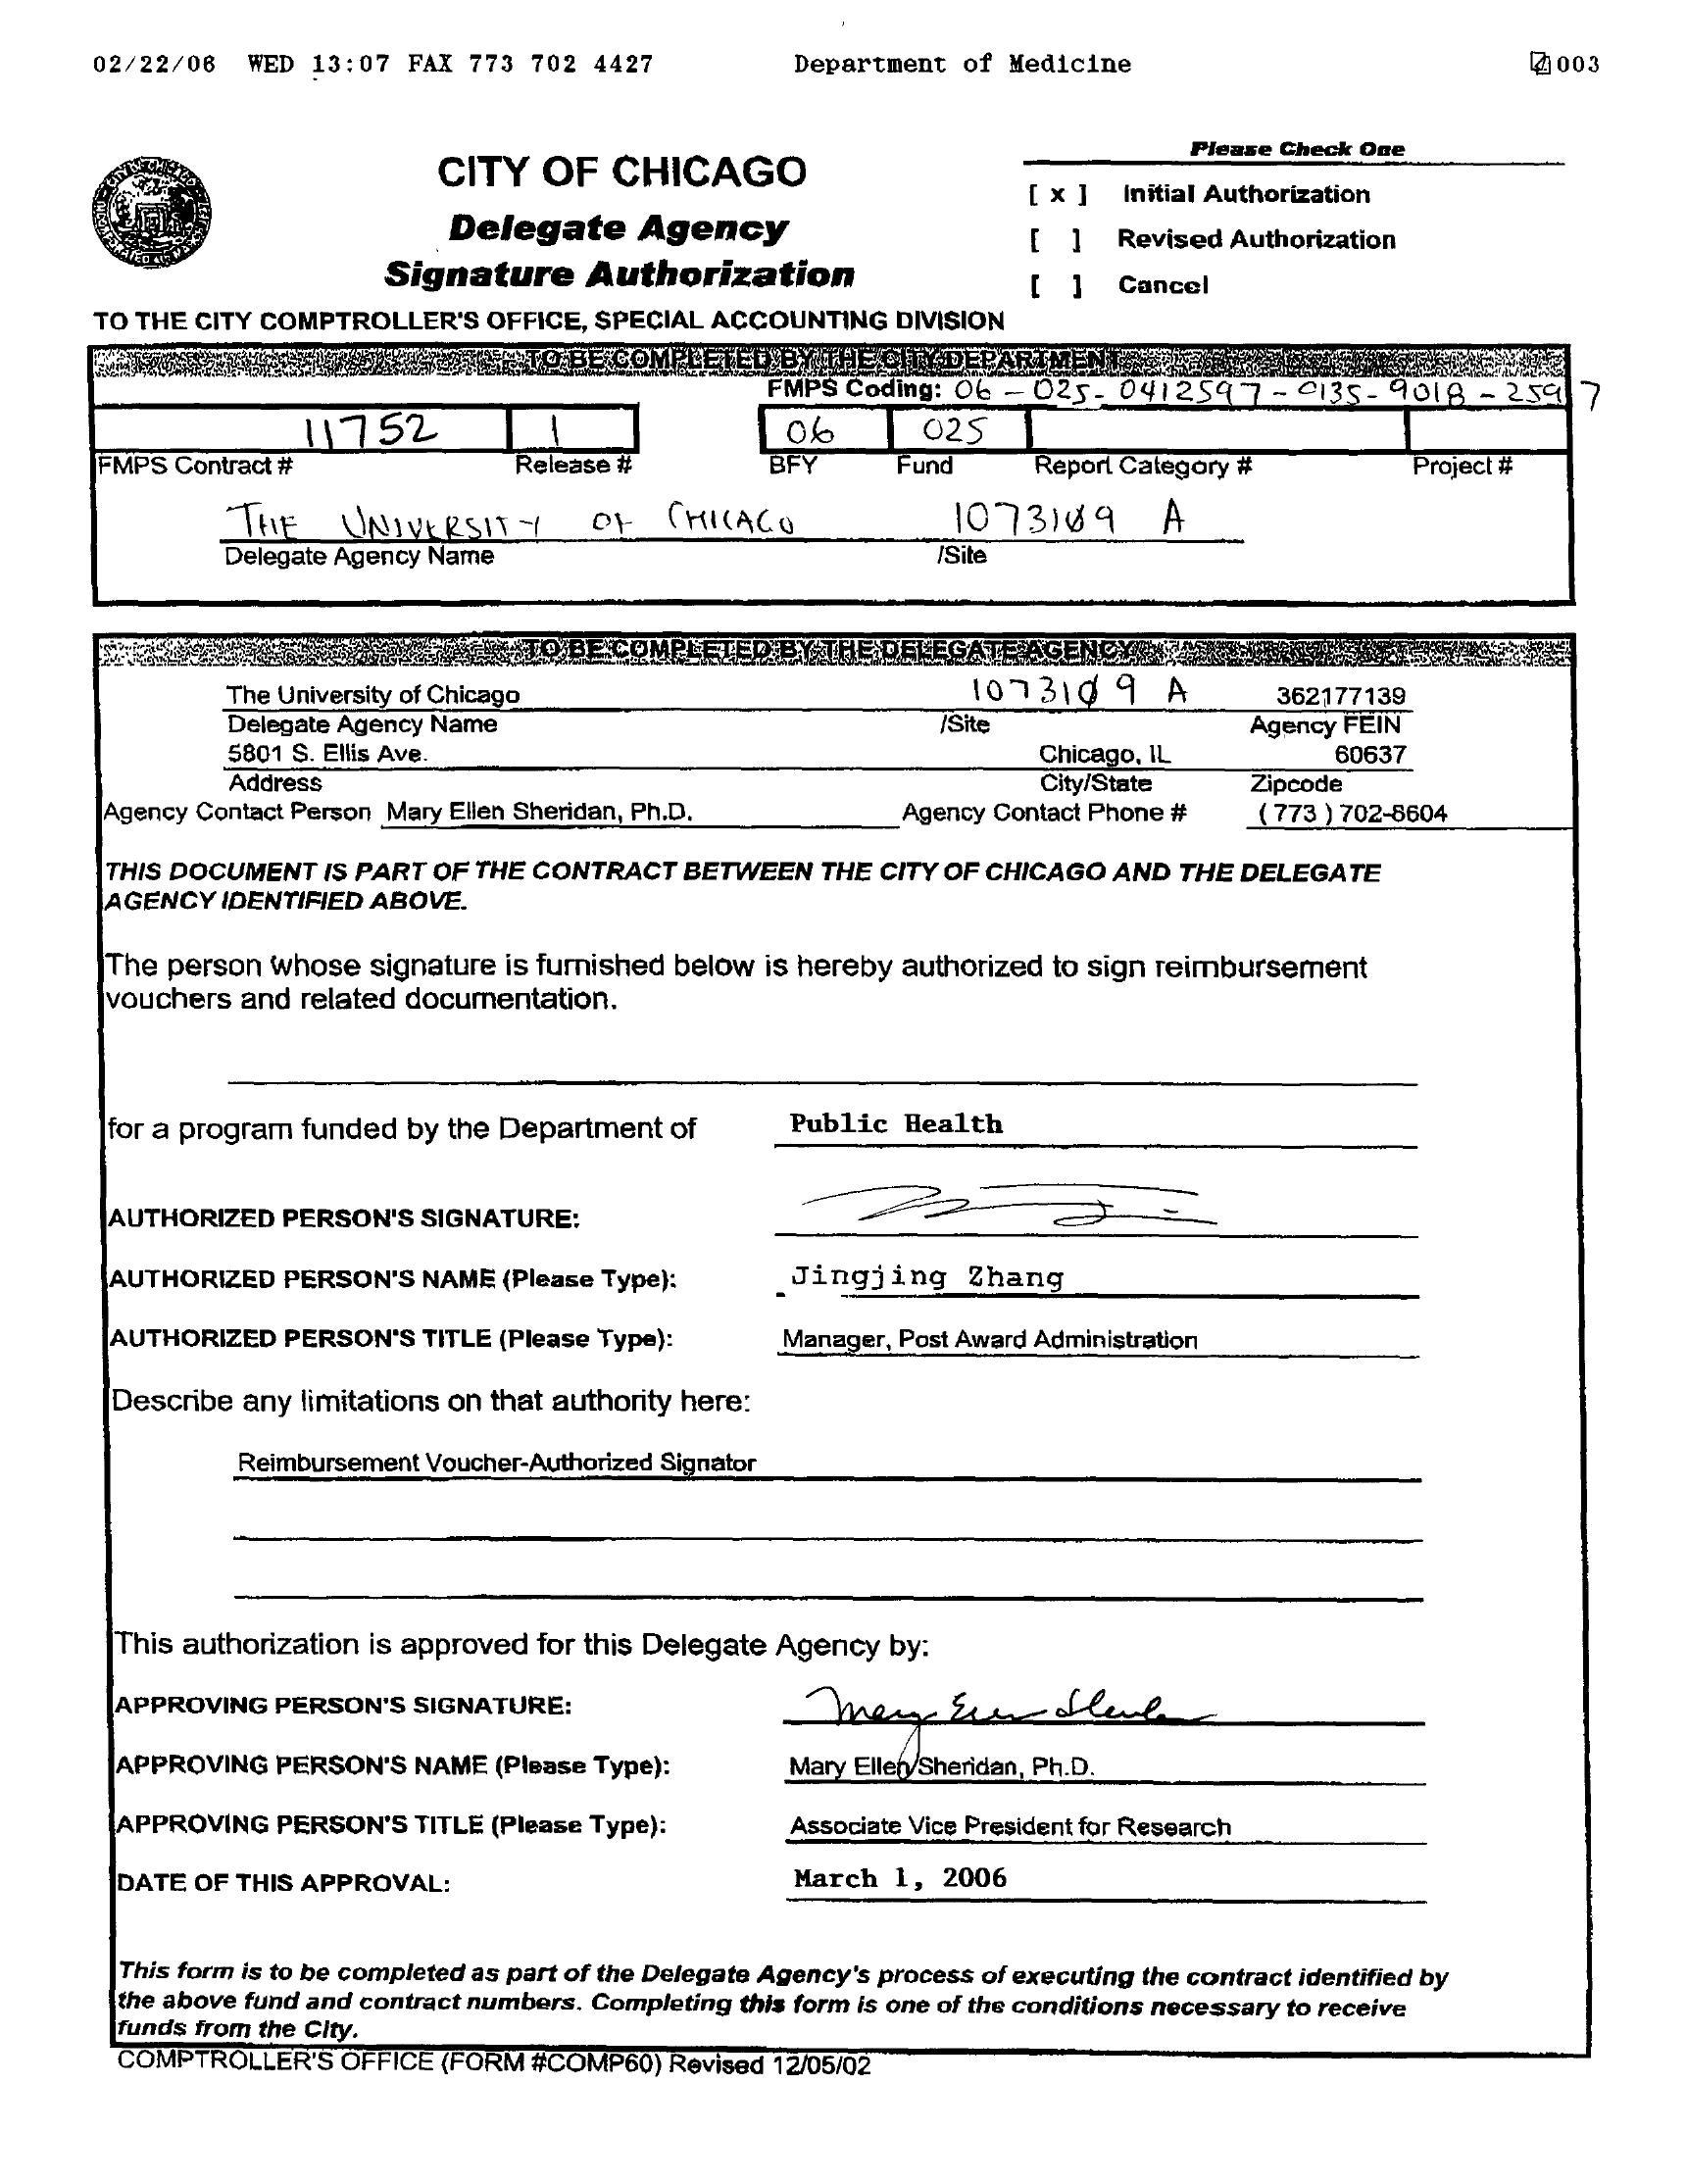 02/22/06 WED 13:07 FAX 773 702 4427 Department of Medicine 003
Please Check One
CITY OF CHICAGO
Delegate Agency
Signature Authorization
[ x ] Initial Authorization
[ ] Revised Authorization
[ ] Cancel
TO THE CITY COMPTROLLER'S OFFICE, SPECIAL ACCOUNTING DIVISION
TO BE COMPLETED BY THE CITY DEPARTMENT
FMPS Coding: 06 - 025 - 0412597 - 0135 - 9018 - 2597
11752 1 06 025
FMPS Contract # Release # BFY Fund Report Category # Project #
THE UNIVERSITY OF CHICAGO 1073109 A
Delegate Agency Name /Site
TO BE COMPLETED BY THE DELEGATE AGENCY
The University of Chicago 1073109 A 362177139
Delegate Agency Name /Site Agency FEIN
5801 S. Ellis Ave. Chicago, IL 60637
Address City/State Zipcode
Agency Contact Person Mary Ellen Sheridan, Ph.D. Agency Contact Phone # ( 773 ) 702-8604
THIS DOCUMENT IS PART OF THE CONTRACT BETWEEN THE CITY OF CHICAGO AND THE DELEGATE
AGENCY IDENTIFIED ABOVE.
The person whose signature is furnished below is hereby authorized to sign reimbursement
vouchers and related documentation.
for a program funded by the Department of Public Health
AUTHORIZED PERSON'S SIGNATURE:
AUTHORIZED PERSON'S NAME (Please Type): Jingjing Zhang
AUTHORIZED PERSON'S TITLE (Please Type): Manager, Post Award Administration
Describe any limitations on that authority here:
Reimbursement Voucher-Authorized Signator
This authorization is approved for this Delegate Agency by:
APPROVING PERSON'S SIGNATURE: Mary Ellen Sheridan
APPROVING PERSON'S NAME (Please Type): Mary Ellen Sheridan, Ph.D.
APPROVING PERSON'S TITLE (Please Type): Associate Vice President for Research
DATE OF THIS APPROVAL: March 1, 2006
This form is to be completed as part of the Delegate Agency's process of executing the contract identified by
the above fund and contract numbers. Completing this form is one of the conditions necessary to receive
funds from the City.
COMPTROLLER'S OFFICE (FORM #COMP60) Revised 12/05/02